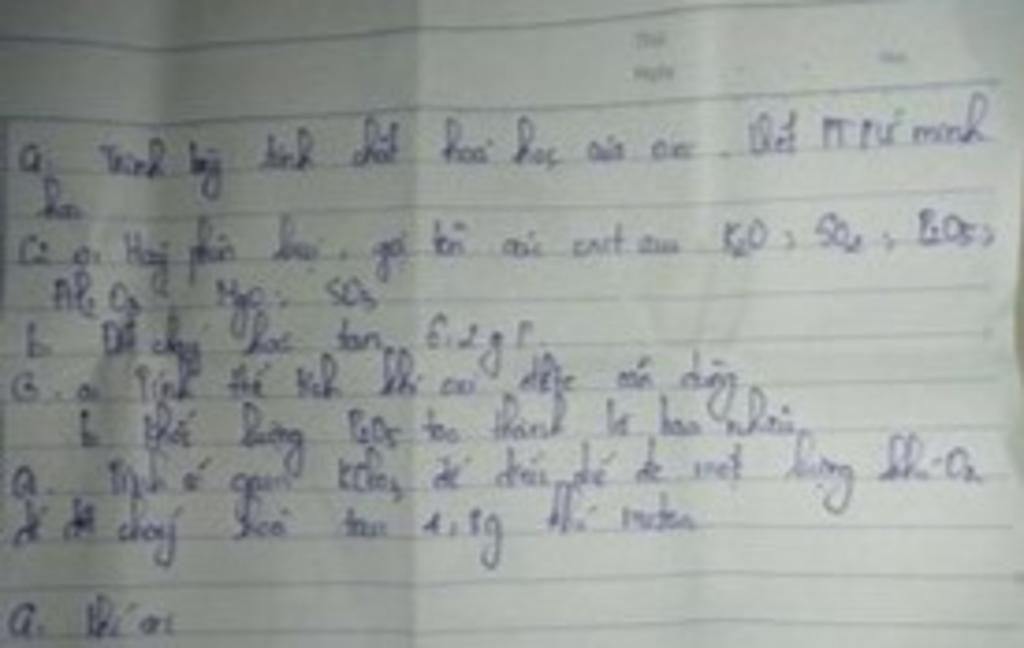 Q. Trình bày tính chất hoá học của oxi. Viết PTPƯ minh
hoạ
a. Hãy phân loại, gọi tên các oxit sau K2O; SO2; P2O5;
Al2O3 MgO; SO3
b. Đốt cháy hoàn toàn 6,2g P.
a. Tính thể tích khí oxi cần dùng
b. Khối lượng P2O5 tạo thành là bao nhiêu.
Q. Tính số gam KClO3 để điều chế được một lượng khí O2
để đốt cháy hoàn toàn khí metan
Q. Khí oxi